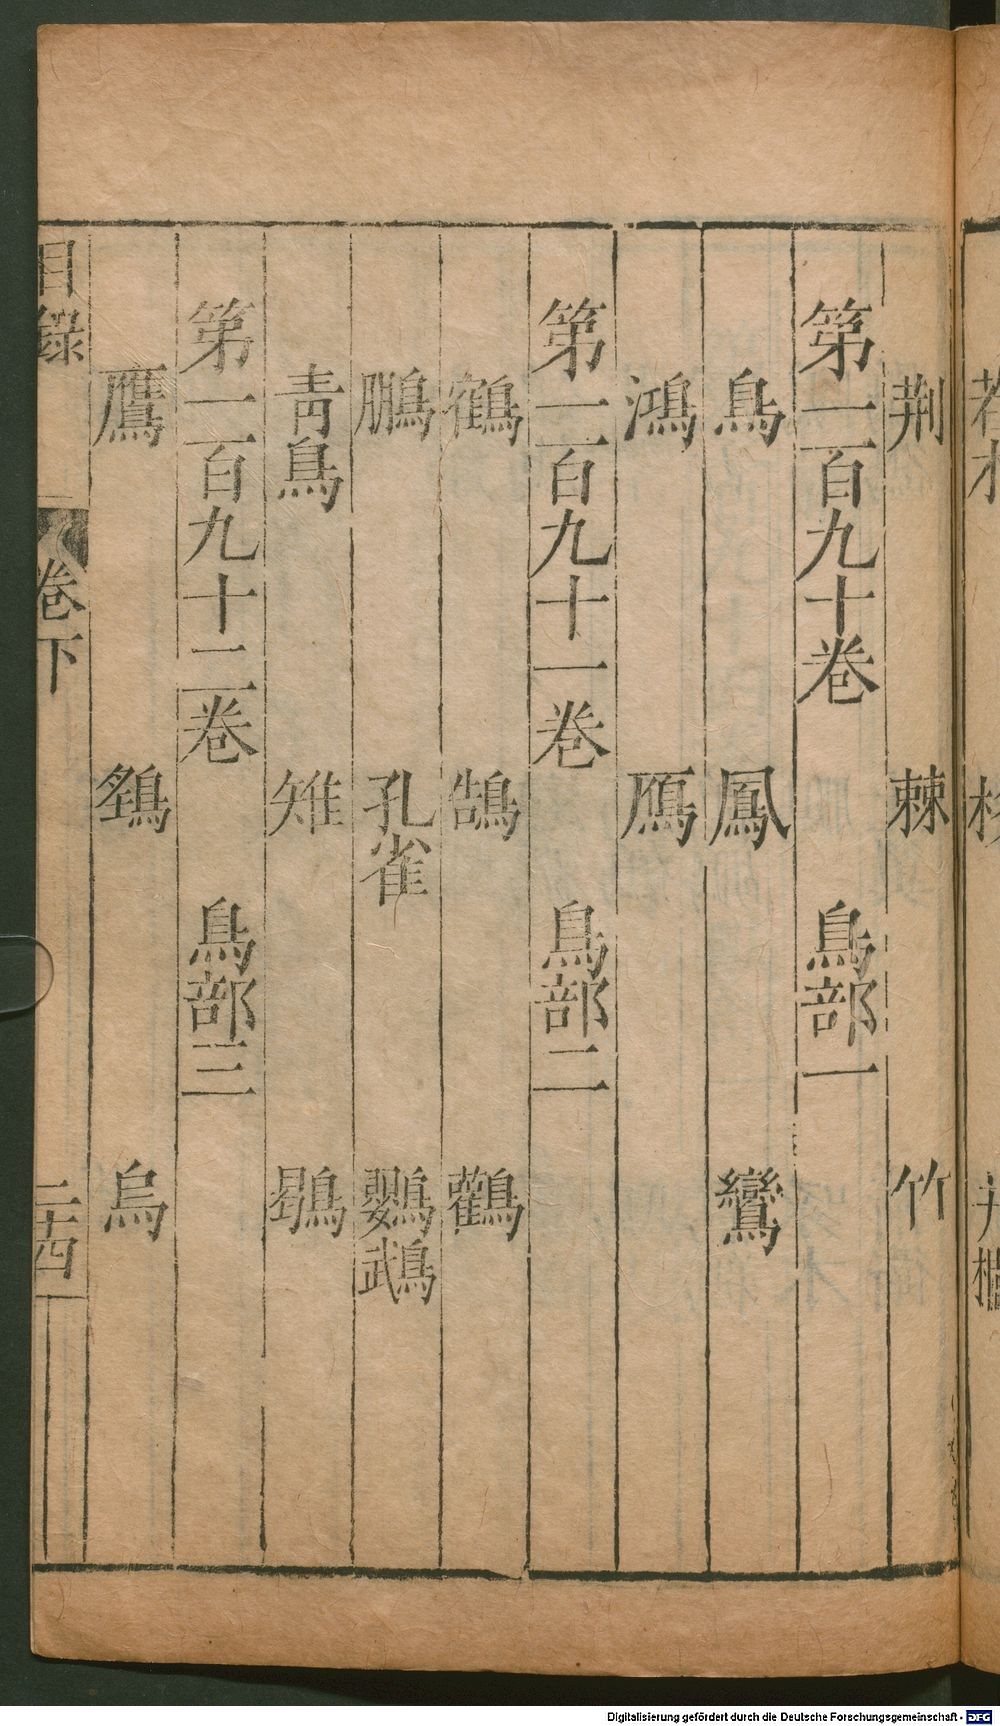 荆 棘 竹
第一百九十卷 鳥部一
鳥 鳳 鸞
鴻 鴈
第一百九十一卷 鳥部二
鶴 鵠 鸛
鵬 孔雀 鸚鵡
青鳥 雉 鶡
第一百九十二卷 鳥部三
鷹 鷂 烏
目錄 卷下 二十四
Digitalisierung gefördert durch die Deutsche Forschungsgemeinschaft - DFG